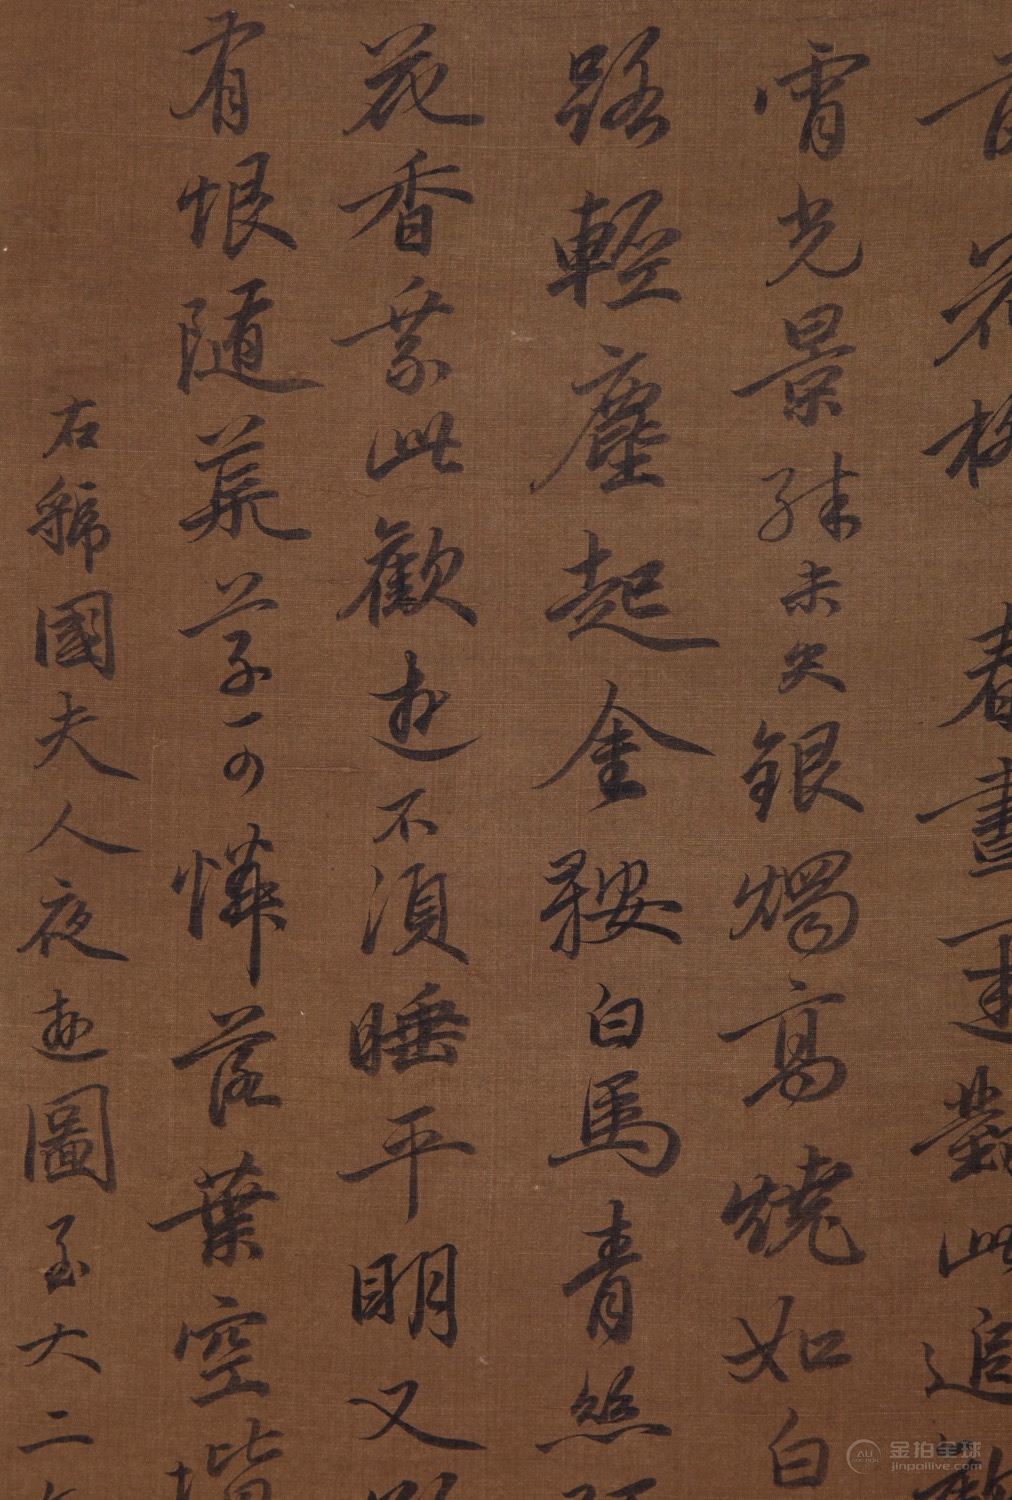 花枝春晝對此追
宵光景殊未央銀燭高燒如白
路輕塵起金鞍白馬青絲
花香乘此歡遊不須睡平明又
有恨隨荒草可憐落葉空堦
右虢國夫人夜遊圖至大二
金拍全球
jinpaillive.com